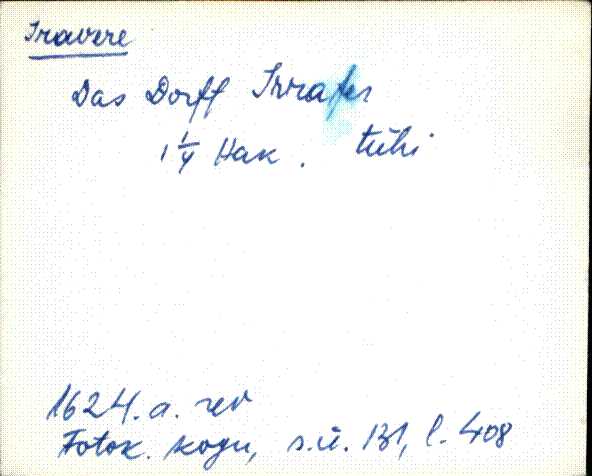 Iravere
Das Dorff Irrafer
1 1/4 Hak. tühi
1624. a. rev
Fotok. kogu, s.ü. 131, l. 408